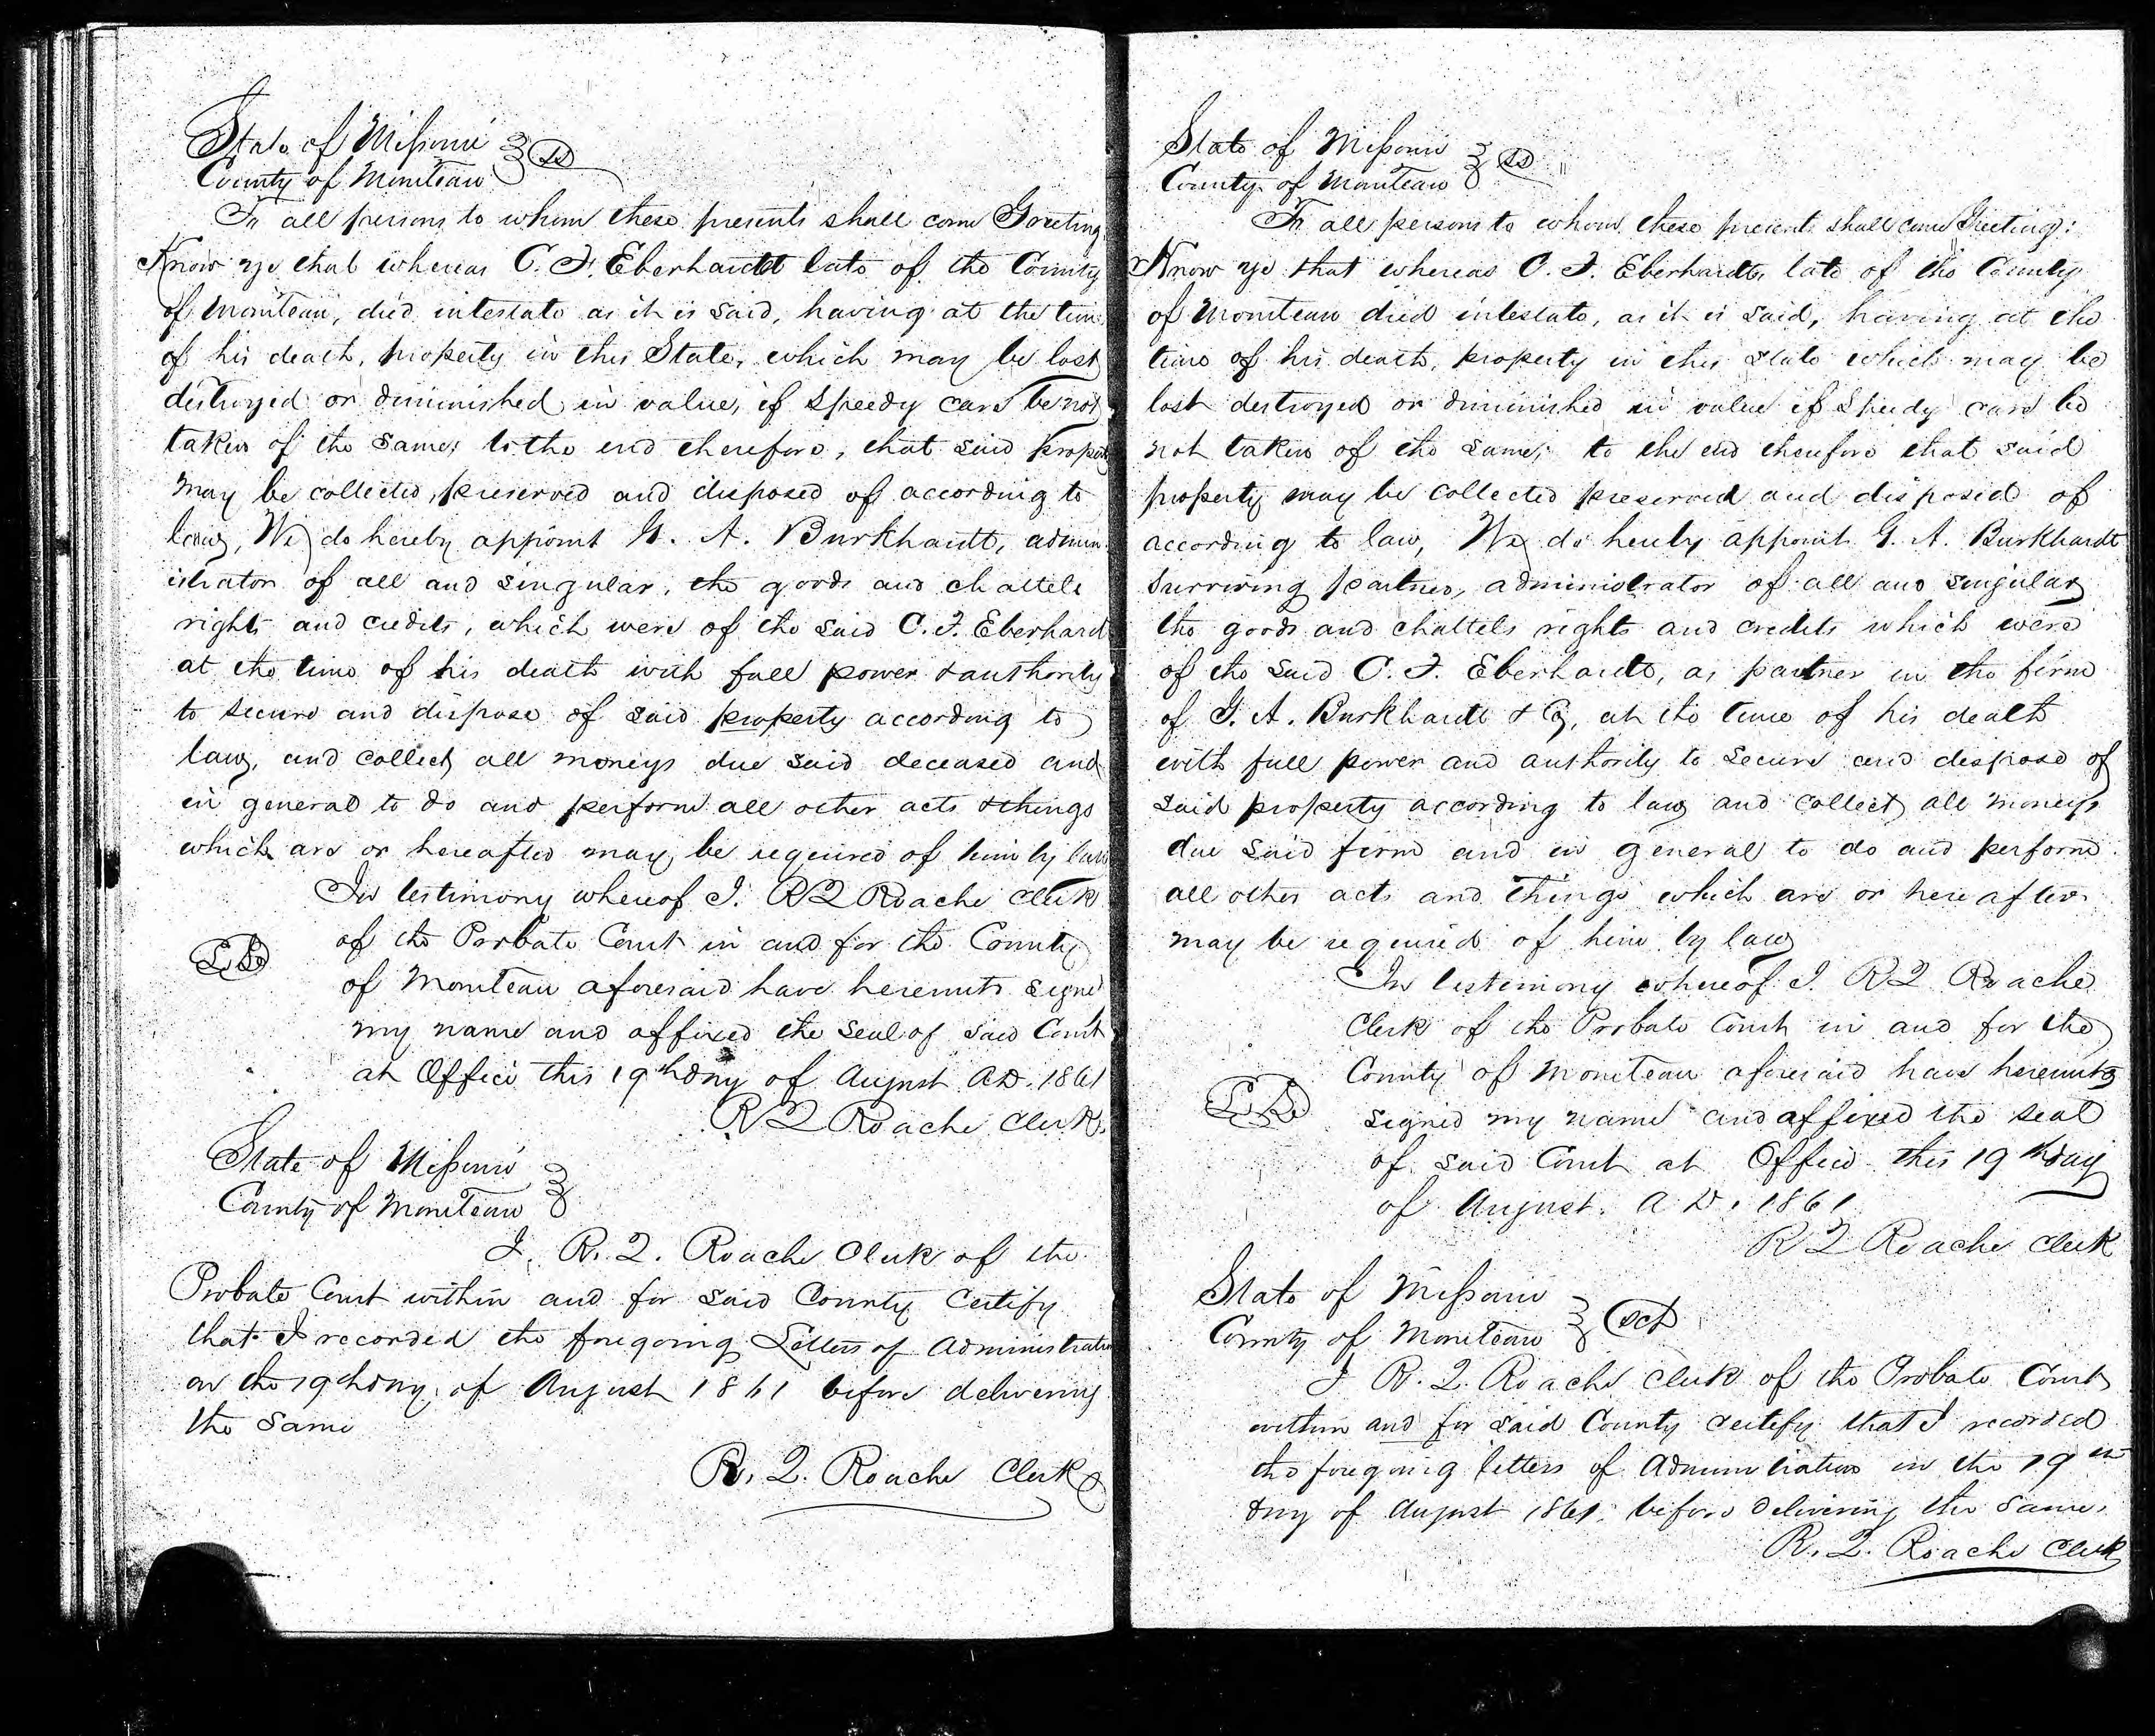 State of Missouri
County of Moniteau } SS
To all persons to whom these presents shall come Greeting
Know ye that whereas C. F. Eberhardt late of the County
of Moniteau, died intestate as it is said, having at the time
of his death, property in this State, which may be lost
destroyed or diminished in value, if speedy care be not
taken of the same; to the end therefore, that said property
may be collected, preserved and disposed of according to
law, We do hereby appoint G. A. Burkhardt, admin
istrator of all and singular, the goods and chattels
rights and credits, which were of the said C. F. Eberhardt
at the time of his death with full power & authority
to secure and dispose of said property according to
law, and collect all moneys due said deceased and
in general to do and perform all other acts & things
which are or hereafter may be required of him by law
In testimony whereof I. R Q Roache Clerk
of the Porbate Court in and for the County
L S
of Moniteau aforesaid have hereunto signed
my name and affixed the seal of said Court
at Office this 19th day of August A.D. 1861
R Q Roache Clerk.
State of Missouri
County of Moniteau }
I, R. Q. Roache Clerk of the
Probate Court within and for said County Certify
that I recorded the foregoing Letters of Administration
on the 19th day of August 1861 before delivering
the same
R. Q. Roache Clerk
State of Missouri
County of Moniteau } SS
To all persons to whom these presents shall come Greeting:
Know ye that whereas C. F. Eberhardt, late of the County
of Moniteau died intestate, as it is said, having at the
time of his death, property in this State which may be
lost destroyed or diminished in value if speedy care be
not taken of the same; to the end therefore that said
property may be collected preserved and disposed of
according to law, We do hereby appoint G. A. Burkhardt
surviving partner, administrator of all and singular
the goods and chattels rights and credits which were
of the said C. F. Eberhardt, as partner in the firm
of G. A. Burkhardt & Co, at the time of his death
with full power and authority to secure and dispose of
said property according to law and collect all moneys
due said firm and in general to do and perform
all other acts and things which are or here after
may be required of him by law
In testimony whereof I. R Q Roache
Clerk of the Probate Court in and for the
County of Moniteau aforesaid have hereunto
L S
signed my name and affixed the seal
of said Court at Office this 19th day
of August. A D. 1861
R Q Roache Clerk
State of Missouri
County of Moniteau } Sct
I R. Q. Roache Clerk of the Probate Court
within and for said County certify that I recorded
the foregoing letters of Administration in the 19th
day of August 1861. before delivering the same.
R. Q. Roache Clerk